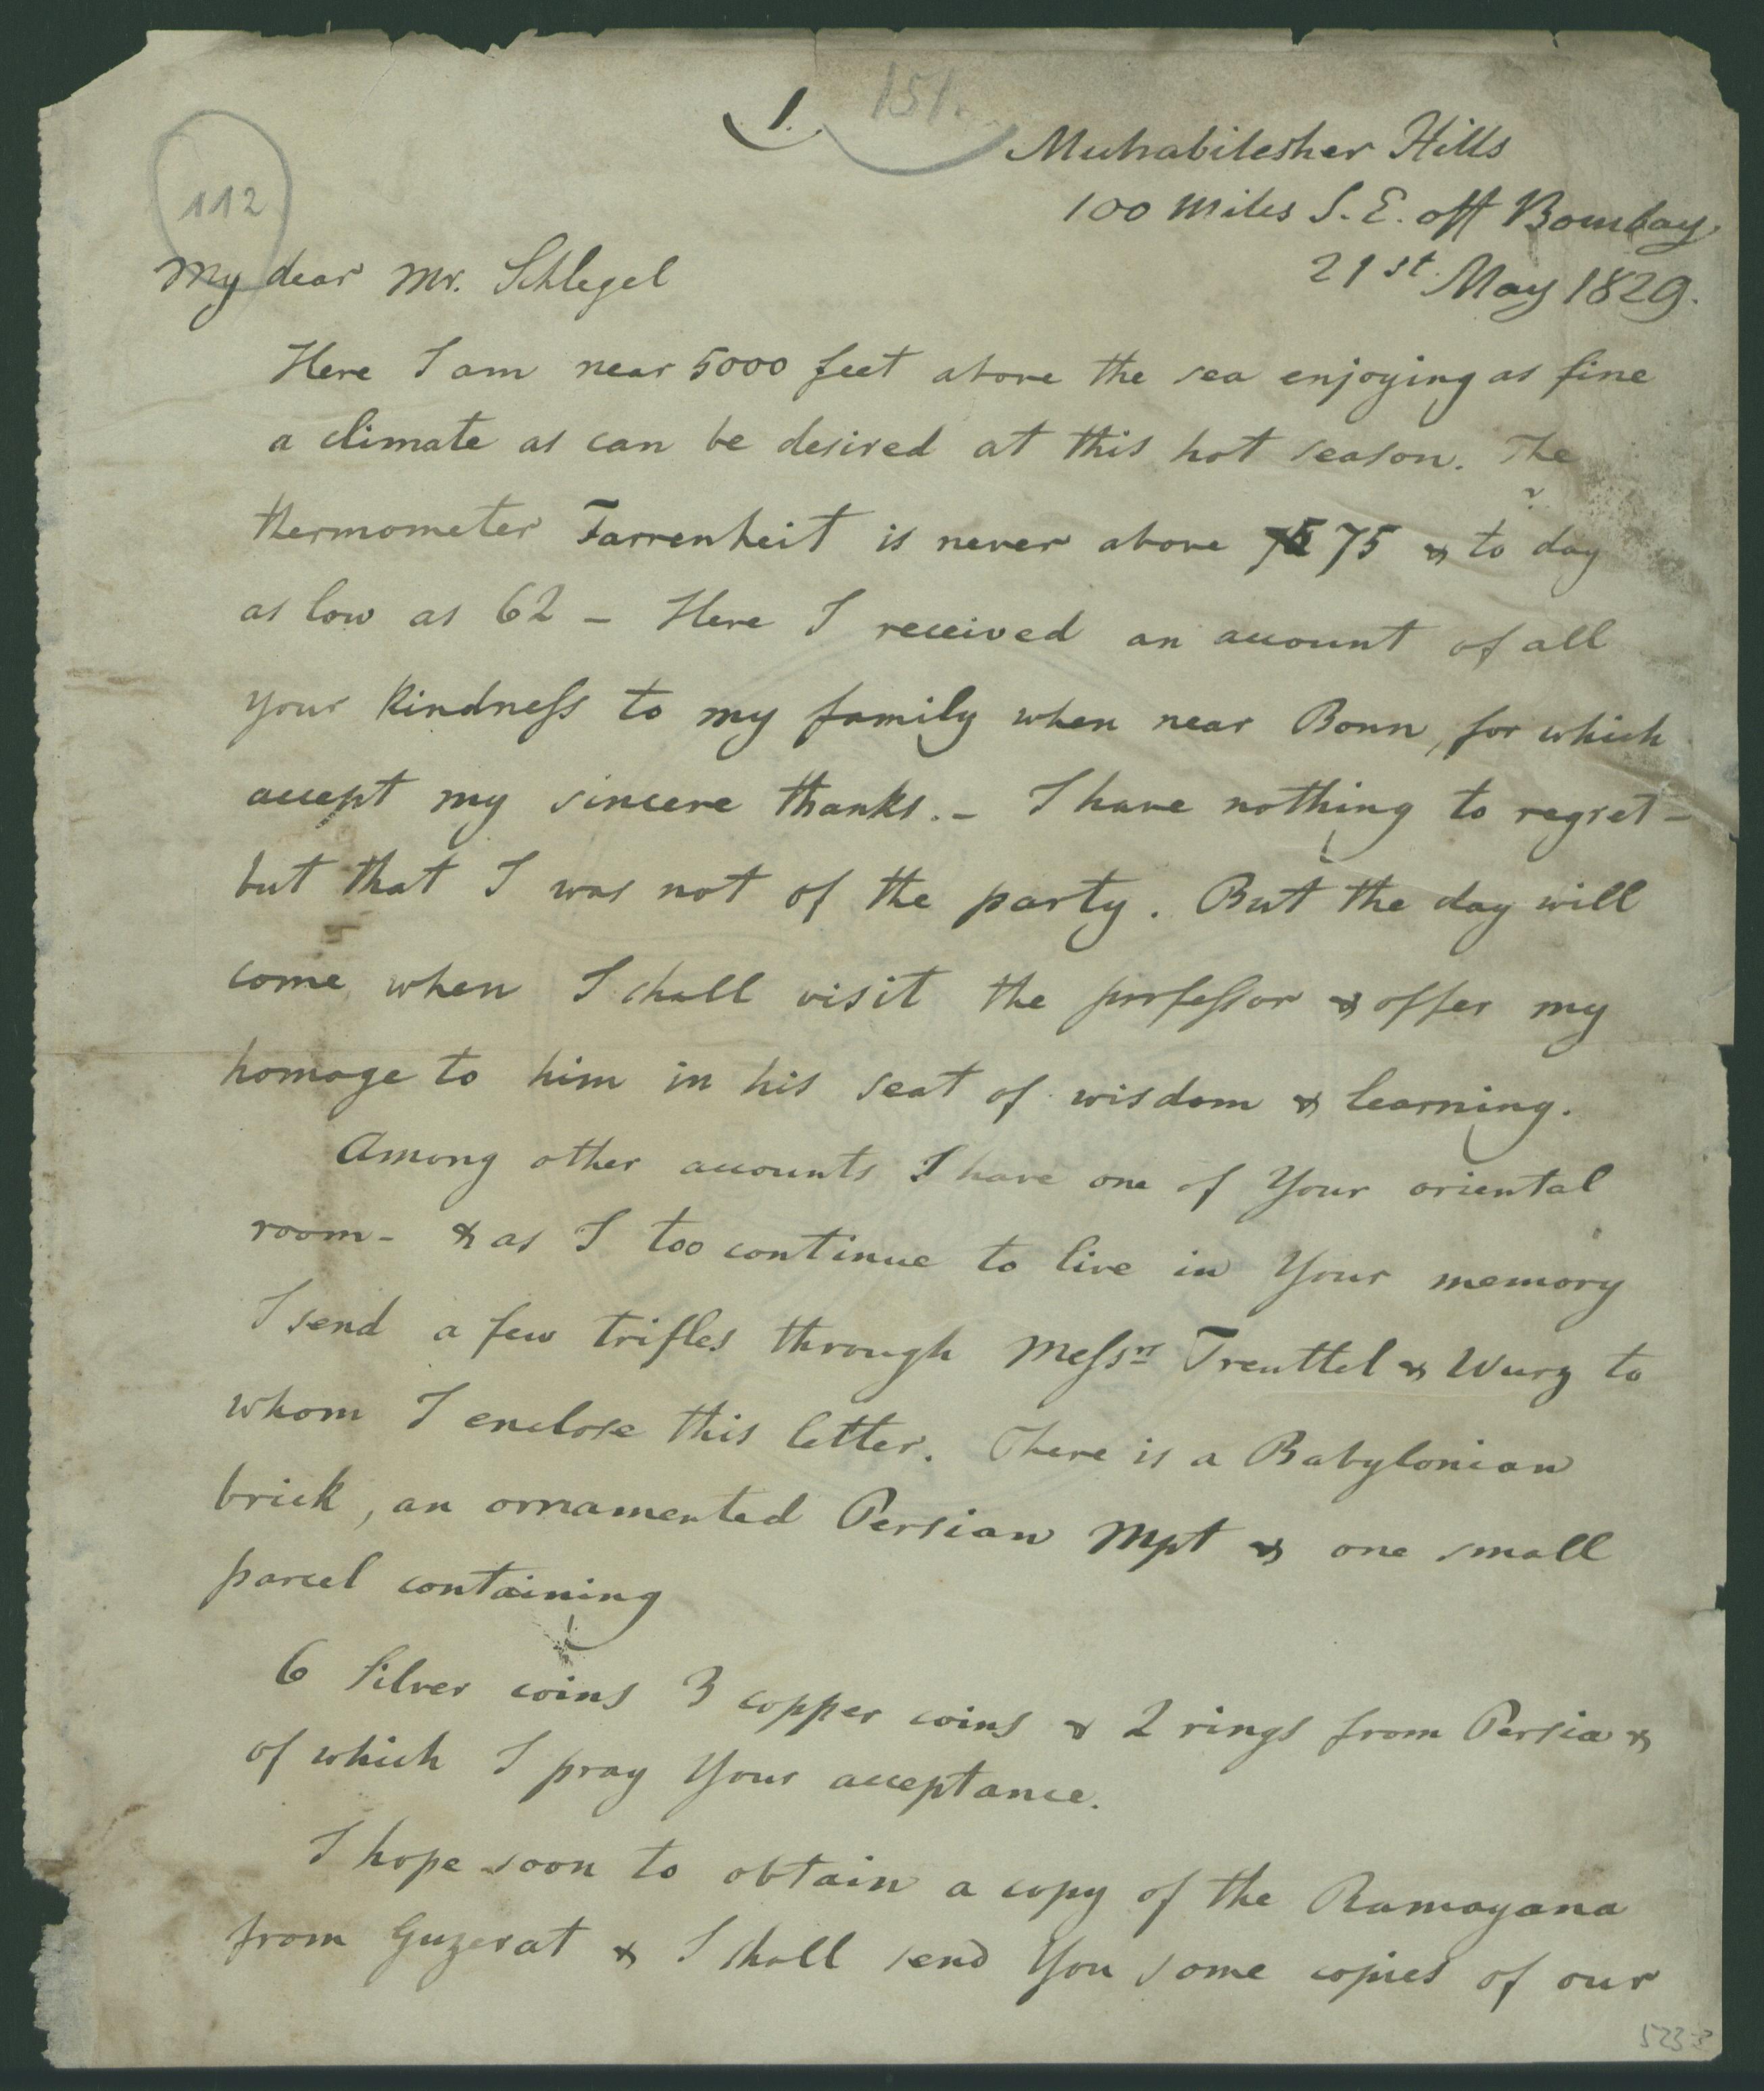 1. 151.
Muhabilesher Hills
100 miles S. E. off Bombay,
112
21st. May 1829.
My dear Mr. Schlegel
Here I am near 5000 feet above the sea enjoying as fine
a climate as can be desired at this hot season. The
thermometer Farrenheit is never above 75 75 & to day
as low as 62 – Here I received an account of all
your kindness to my family when near Bonn, for which
accept my sincere thanks. – I have nothing to regret –
but that I was not of the party. But the day will
come when I shall visit the professor & offer my
homage to him in his seat of wisdom & learning.
Among other accounts I have one of Your oriental
room – & as I too continue to live in Your memory
I send a few trifles through Messrs Treuttel & Wurz to
whom I enclose this letter. There is a Babylonian
brick, an ornamented Persian Mpt & one small
parcel containing
6 Silver coins 3 copper coins & 2 rings from Persia &
of which I pray Your acceptance.
I hope soon to obtain a copy of the Ramayana
from Guzerat & I shall send You some copies of our